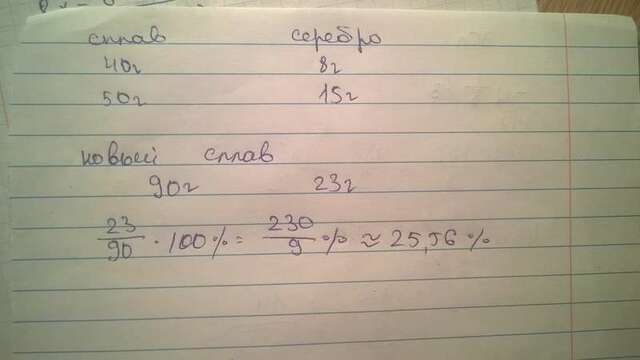 сплав серебро
40г 8г
50г 15г
новый сплав
90г 23г
23/90 · 100% = 230/9 % ≈ 25,56%